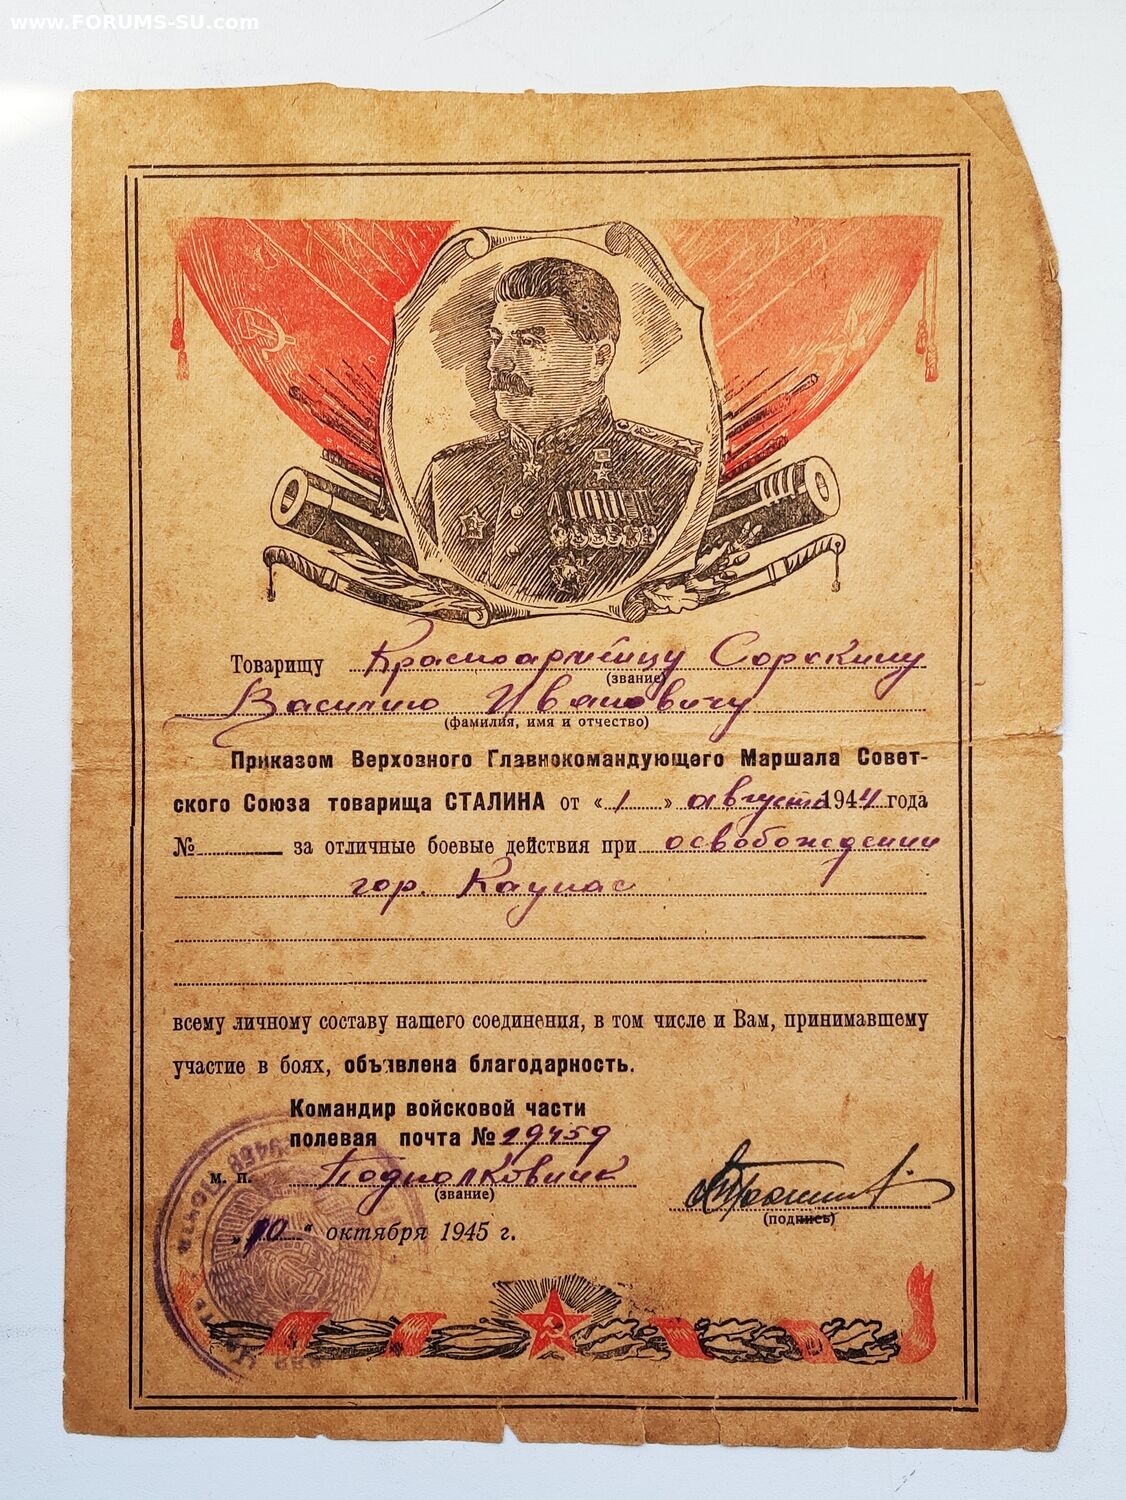 www.FORUMS-SU.com
Товарищу Красноармейцу Сорокину
(звание)
Василию Ивановичу
(фамилия, имя и отчество)
Приказом Верховного Главнокомандующего Маршала Совет-
ского Союза товарища СТАЛИНА от «1» августа 1944 года
№ за отличные боевые действия при освобождении
гор. Каунас
всему личному составу нашего соединения, в том числе и Вам, принимавшему
участие в боях, объявлена благодарность.
Командир войсковой части
полевая почта № 29459
м. п. Подполковник
(звание)
(подпись)
„10“ октября 1945 г.